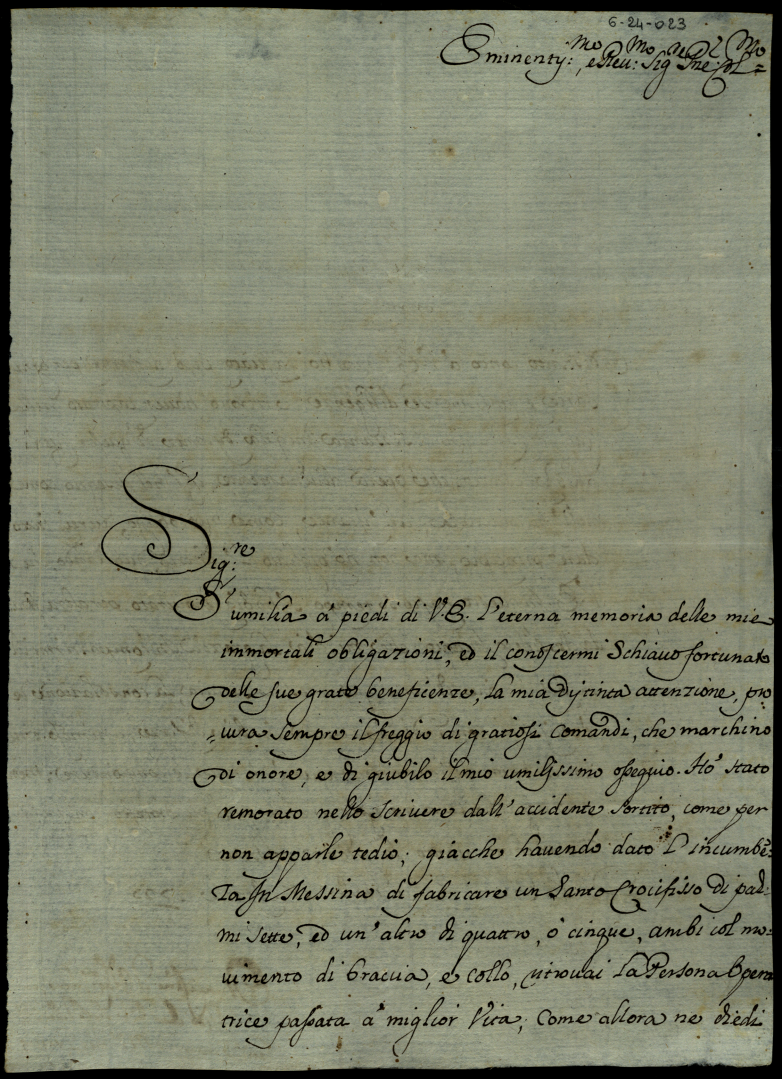 6-24-023
Eminentis:mo, e Reu:mo Sig.re Pne: Col:mo
Sig:re
S'umilia à piedi di V.E. l'eterna memoria delle mie
immortali obligazioni, ed il conoscermi Schiauo fortunato
delle sue grate beneficenze, la mia distinta attenzione, pro
=cura sempre il freggio di gratiosi Comandi, che marchino
di onore, e di giubilo il mio umilissimo ossequio. Hò stato
remorato nello scrivere dall'accidente sortito, come per
non apparle tedio, giacche havendo dato l'incumbē:
za In Messina di fabricare un Santo Crocifisso di pal:
mi sette, ed un'altro di quattro, ò cinque, ambi col mo:
uimento di braccia, e collo, ritrouai la Persona Opera
trice passata à miglior Vita, Come allora ne diedi